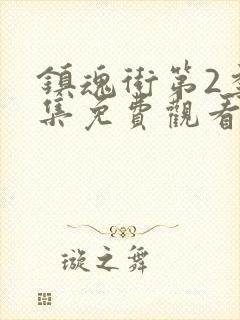 鎮魂街第2季
集免費觀看
璇之舞